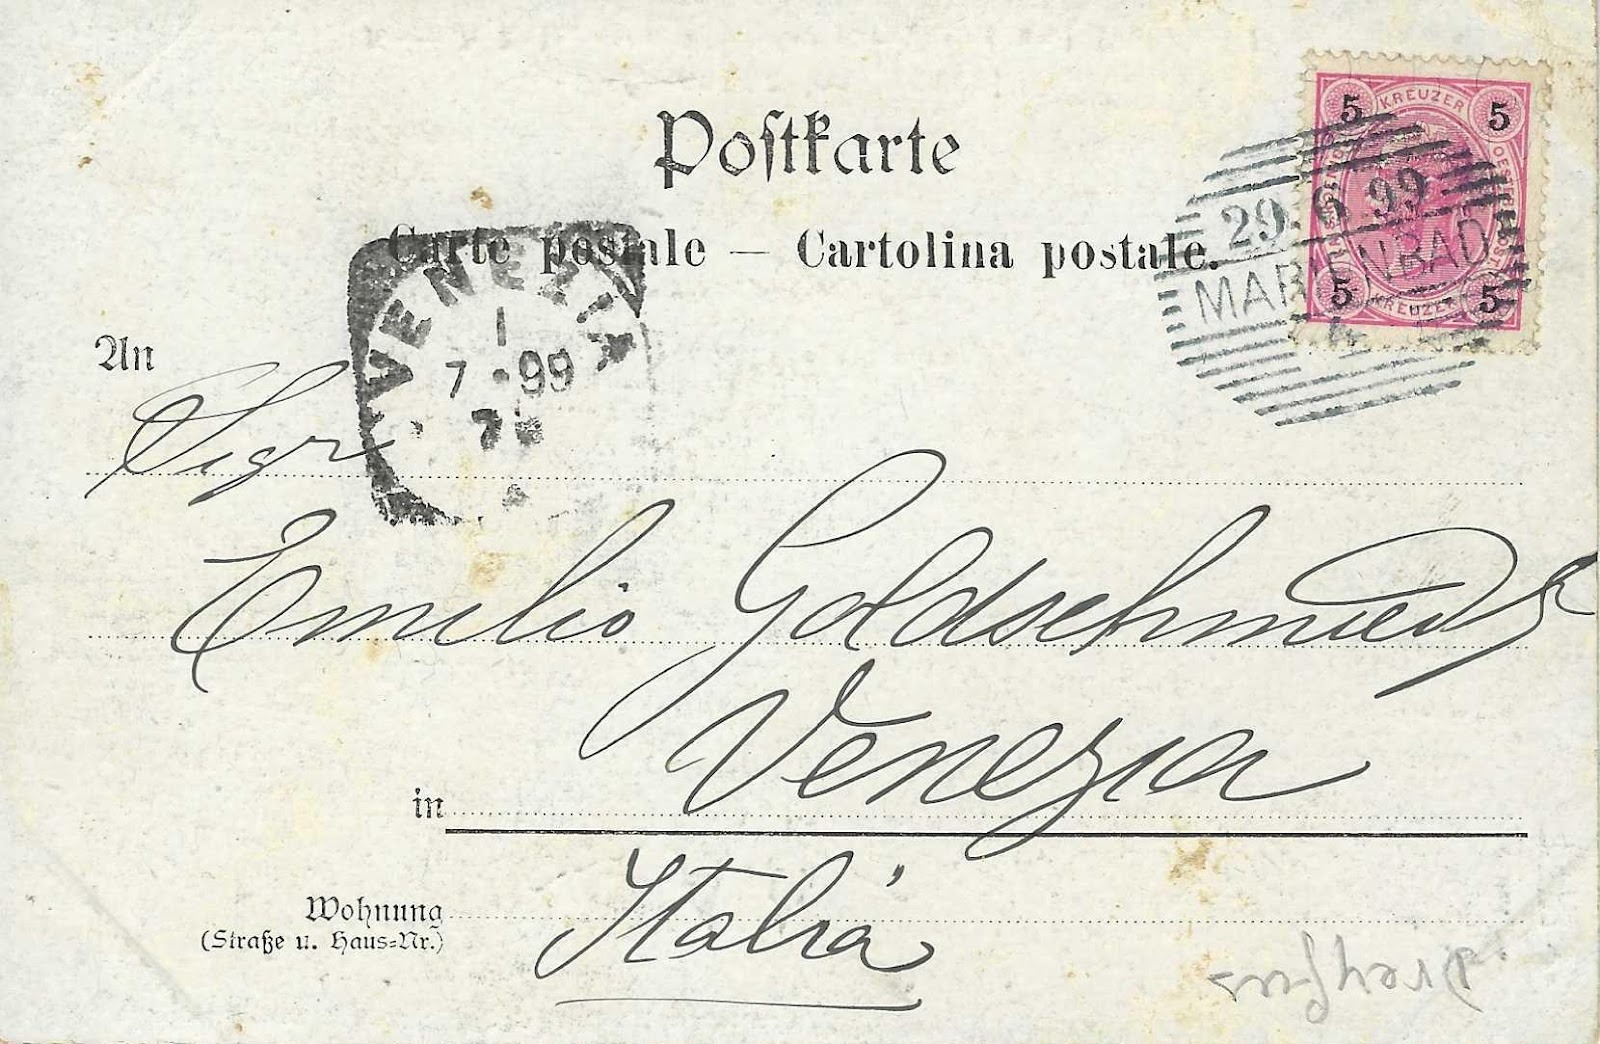 Postkarte
Carte postale — Cartolina postale.
5 KREUZER 5
5 KREUZER 5
29. 6. 99
MARIENBAD
VENEZIA
1
7 · 99
7
An
Sigr
Emilio Goldschmiedt
Venezia
in
Italia
Wohnung
(Straße u. Haus-Nr.)
Dreyfus